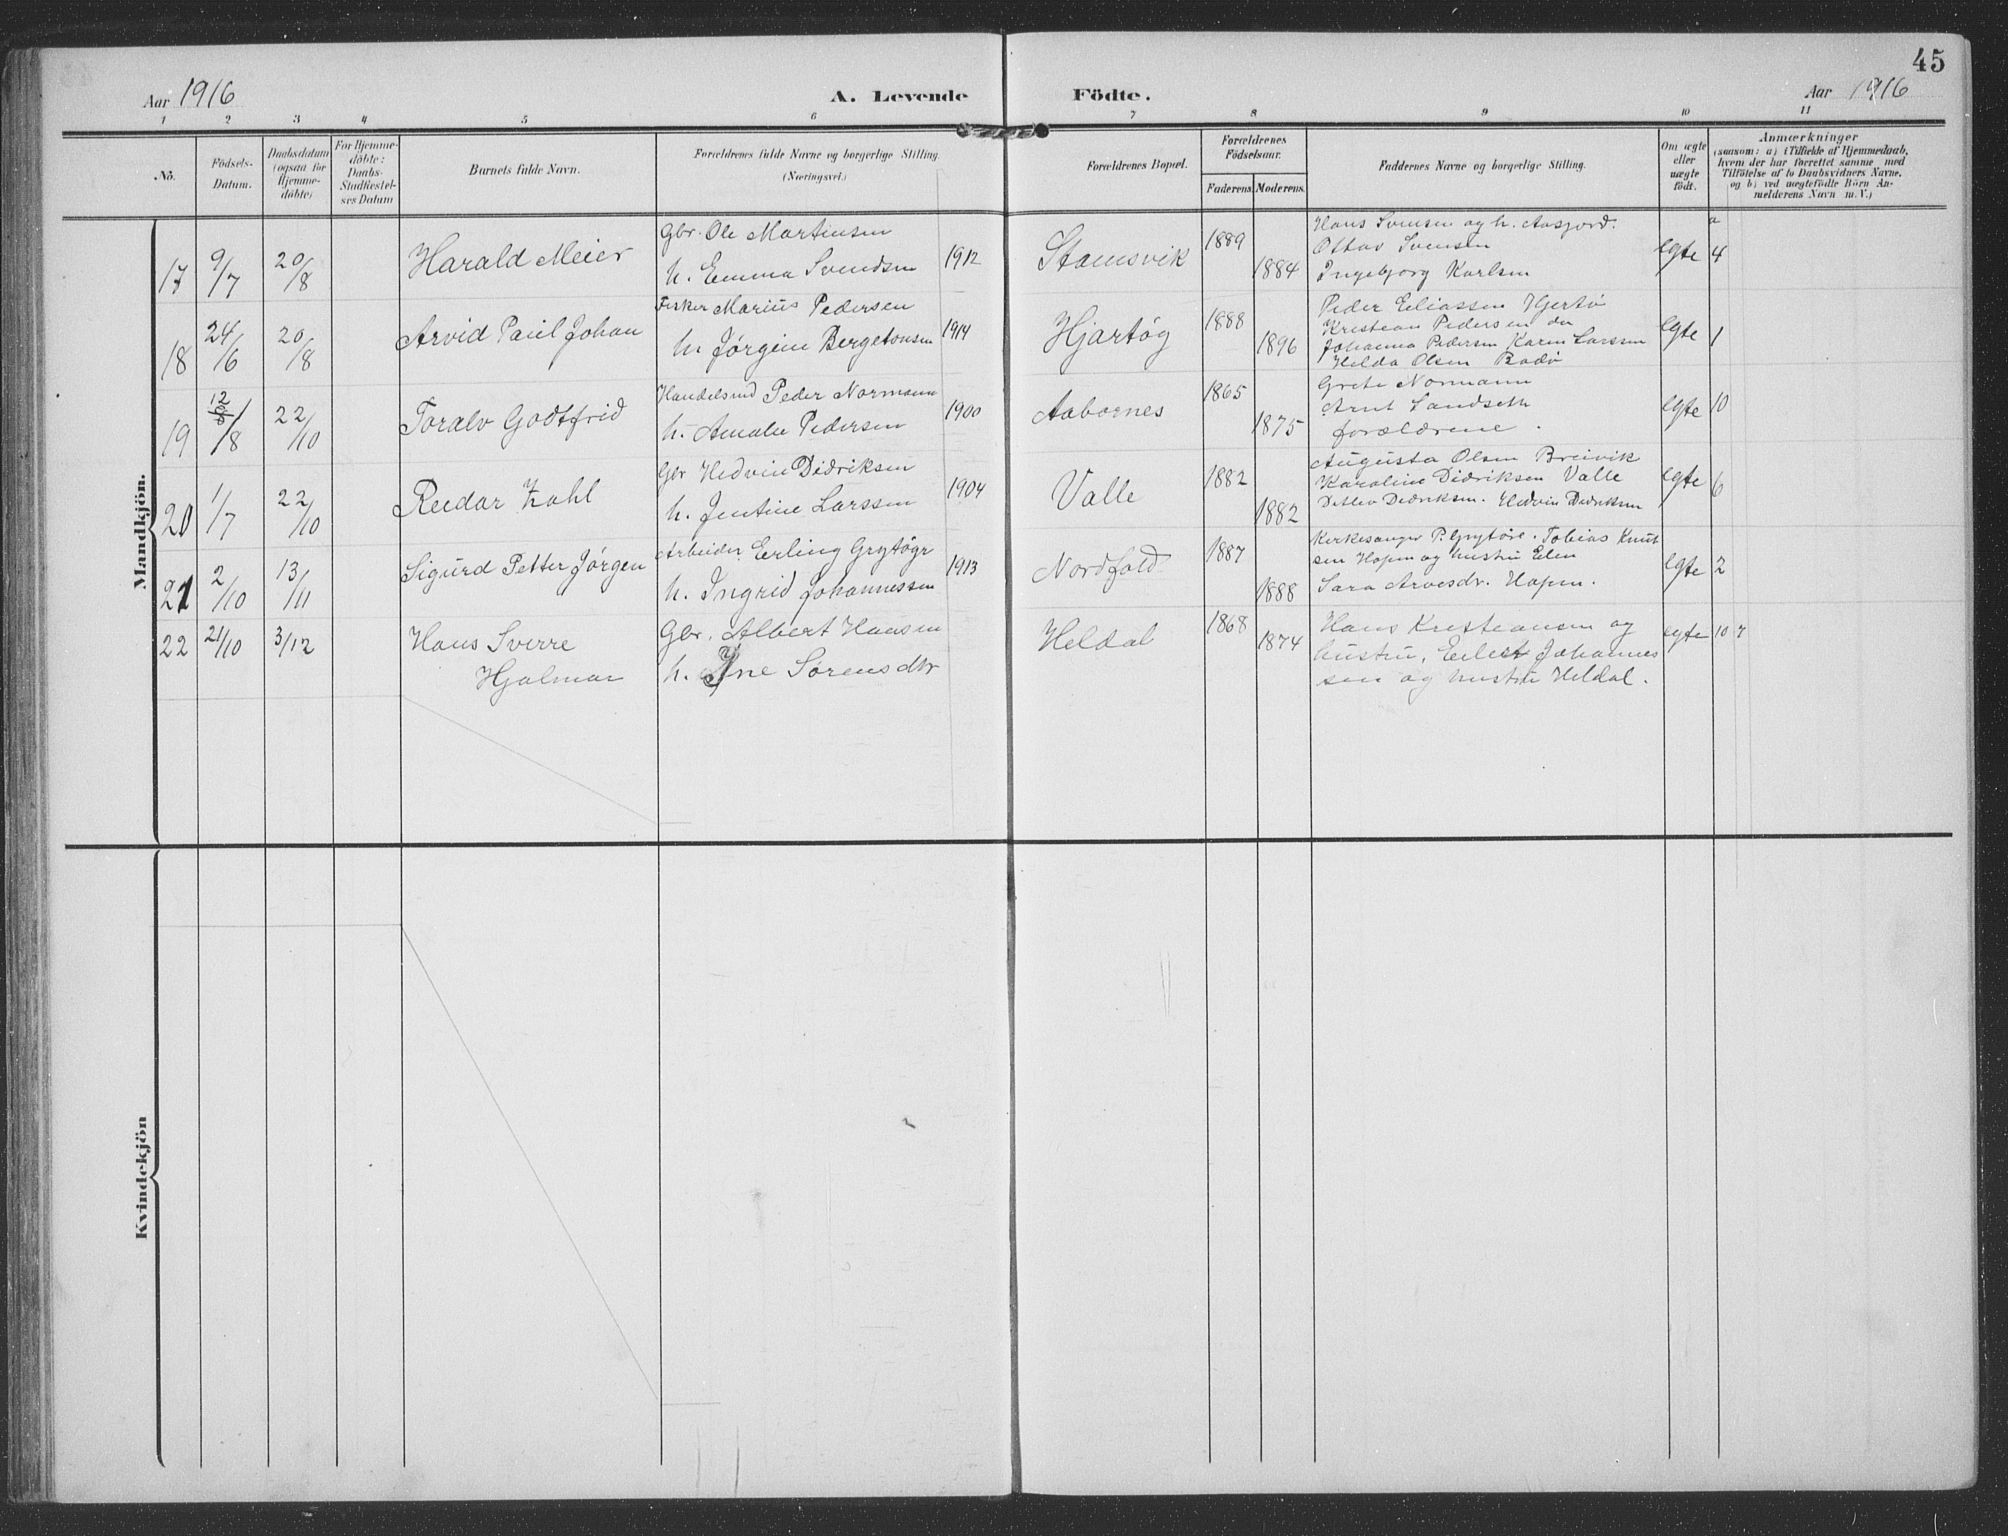 45
Aar 1916
A. Levende
Födte.
Aar 1916
1 2 3 4 5 6 7 8 9 10 11
No.
Födsels-Datum.
Daabsdatum (ogsaa for Hjemmedöbte)
For Hjemmedöbte: Daabs-Stadfæstelses Datum
Barnets fulde Navn.
Forældrenes fulde Navne og borgerlige Stilling.
(Næringsvei.)
Forældrenes Bopæl.
Forældrenes Födselsaar.
Faderens. Moderens.
Faddernes Navne og borgerlige Stilling.
Om ægte eller uægte födt.
Anmærkninger
(saasom: a) i Tilfælde af Hjemmedaab,
hvem der har forrettet samme, med
Tilföielse af to Daabsvidners Navne,
og b) ved uægtefödte Börn An-
melderens Navn m. V.)
Mandkjön.
17 9/7 20/8 Harald Meier
Gbr. Ole Martinsen
h. Emma Svendsen 1912
Stamsvik 1889 1884
Hans Svensen og h. Aasjord.
Ottar Svensen
Ingebjorg Karlsen
egte a 4
18 24/6 20/8 Arvid Paul Johan
Fisker Marius Pedersen
h. Jørgine Bergetonsen 1914
Hjartøg 1888 1896
Peder Eeliassen Hjertö
Kristean Pedersen do
Johanna Pedersen Karen Larssen
Helda Olsen Bodö
egte 1
19 12/8 22/10 Toralv Godtfrid
Handelsmd Peder Normann
h. Amalie Pedersen 1900
Aabornes 1865 1875
Grete Normann
Arnt Sandseth
forældrene.
egte 10
20 1/7 22/10 Reidar Zahl
Gbr Hedvin Didriksen
h. Jentine Larssen 1904
Valle 1882 1882
Augusta Olsen Breivik
Karoline Didriksen Valle
Detlev Didriksen. Hedvin Didriksen
egte 6
21 2/10 13/11 Sigurd Petter Jörgen
Arbeider Erling Grytögr
h. Ingrid Johannessen 1913
Nordfold 1887 1888
Kerkesanger P. Grytöre. Tobias Knut
sen Hopen og hustru Elen
Sara Arvesdr. Hopen.
egte 2
22 21/10 3/12 Hans Sverre
Hjalmar
Gbr. Albert Hansen
h. Ine Sörensdtr
Heldal 1868 1874
Hans Kristeansen og
hustru, Eilert Johannes
sen og hustru Heldal.
egte 10 7
Kvindekjön